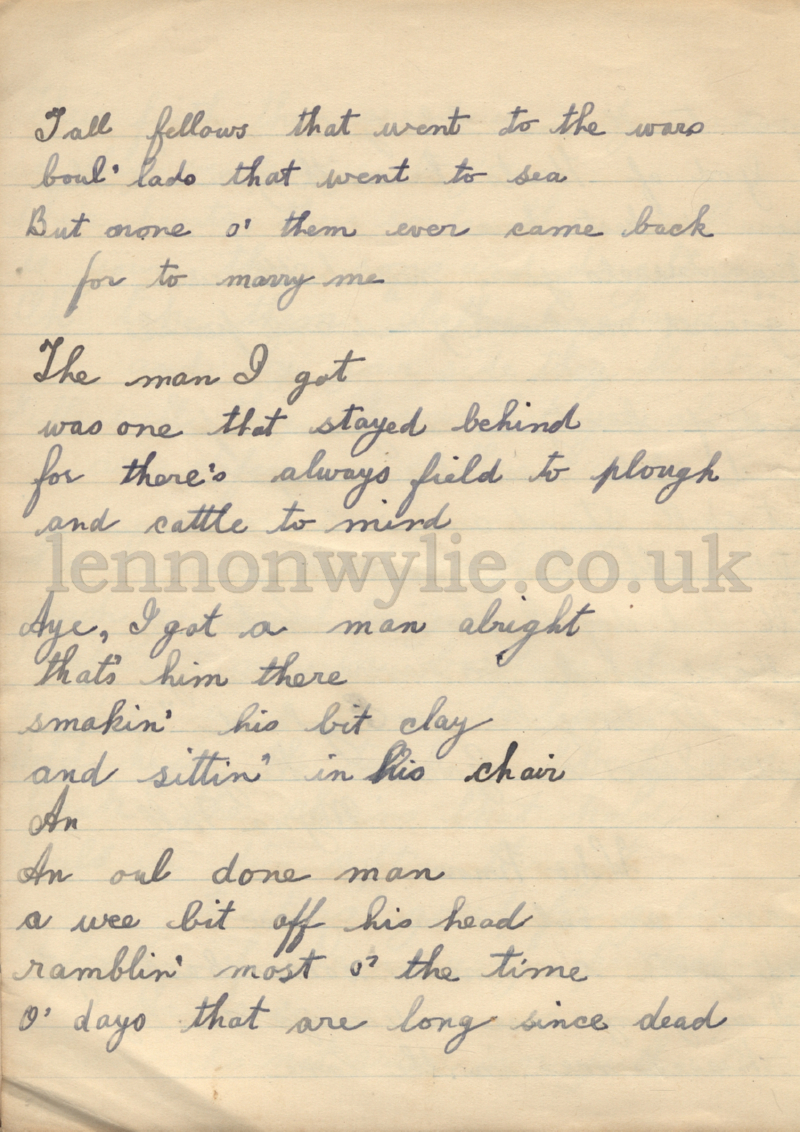 Tall fellows that went to the wars
boul' lads that went to sea
But none o' them ever came back
for to marry me
The man I got
was one that stayed behind
for there's always field to plough
and cattle to mind
lennonwylie.co.uk
Aye, I got a man alright
that's him there
smokin' his bit clay
and sittin' in his chair
An
An oul done man
a wee bit off his head
ramblin' most o' the time
O' days that are long since dead